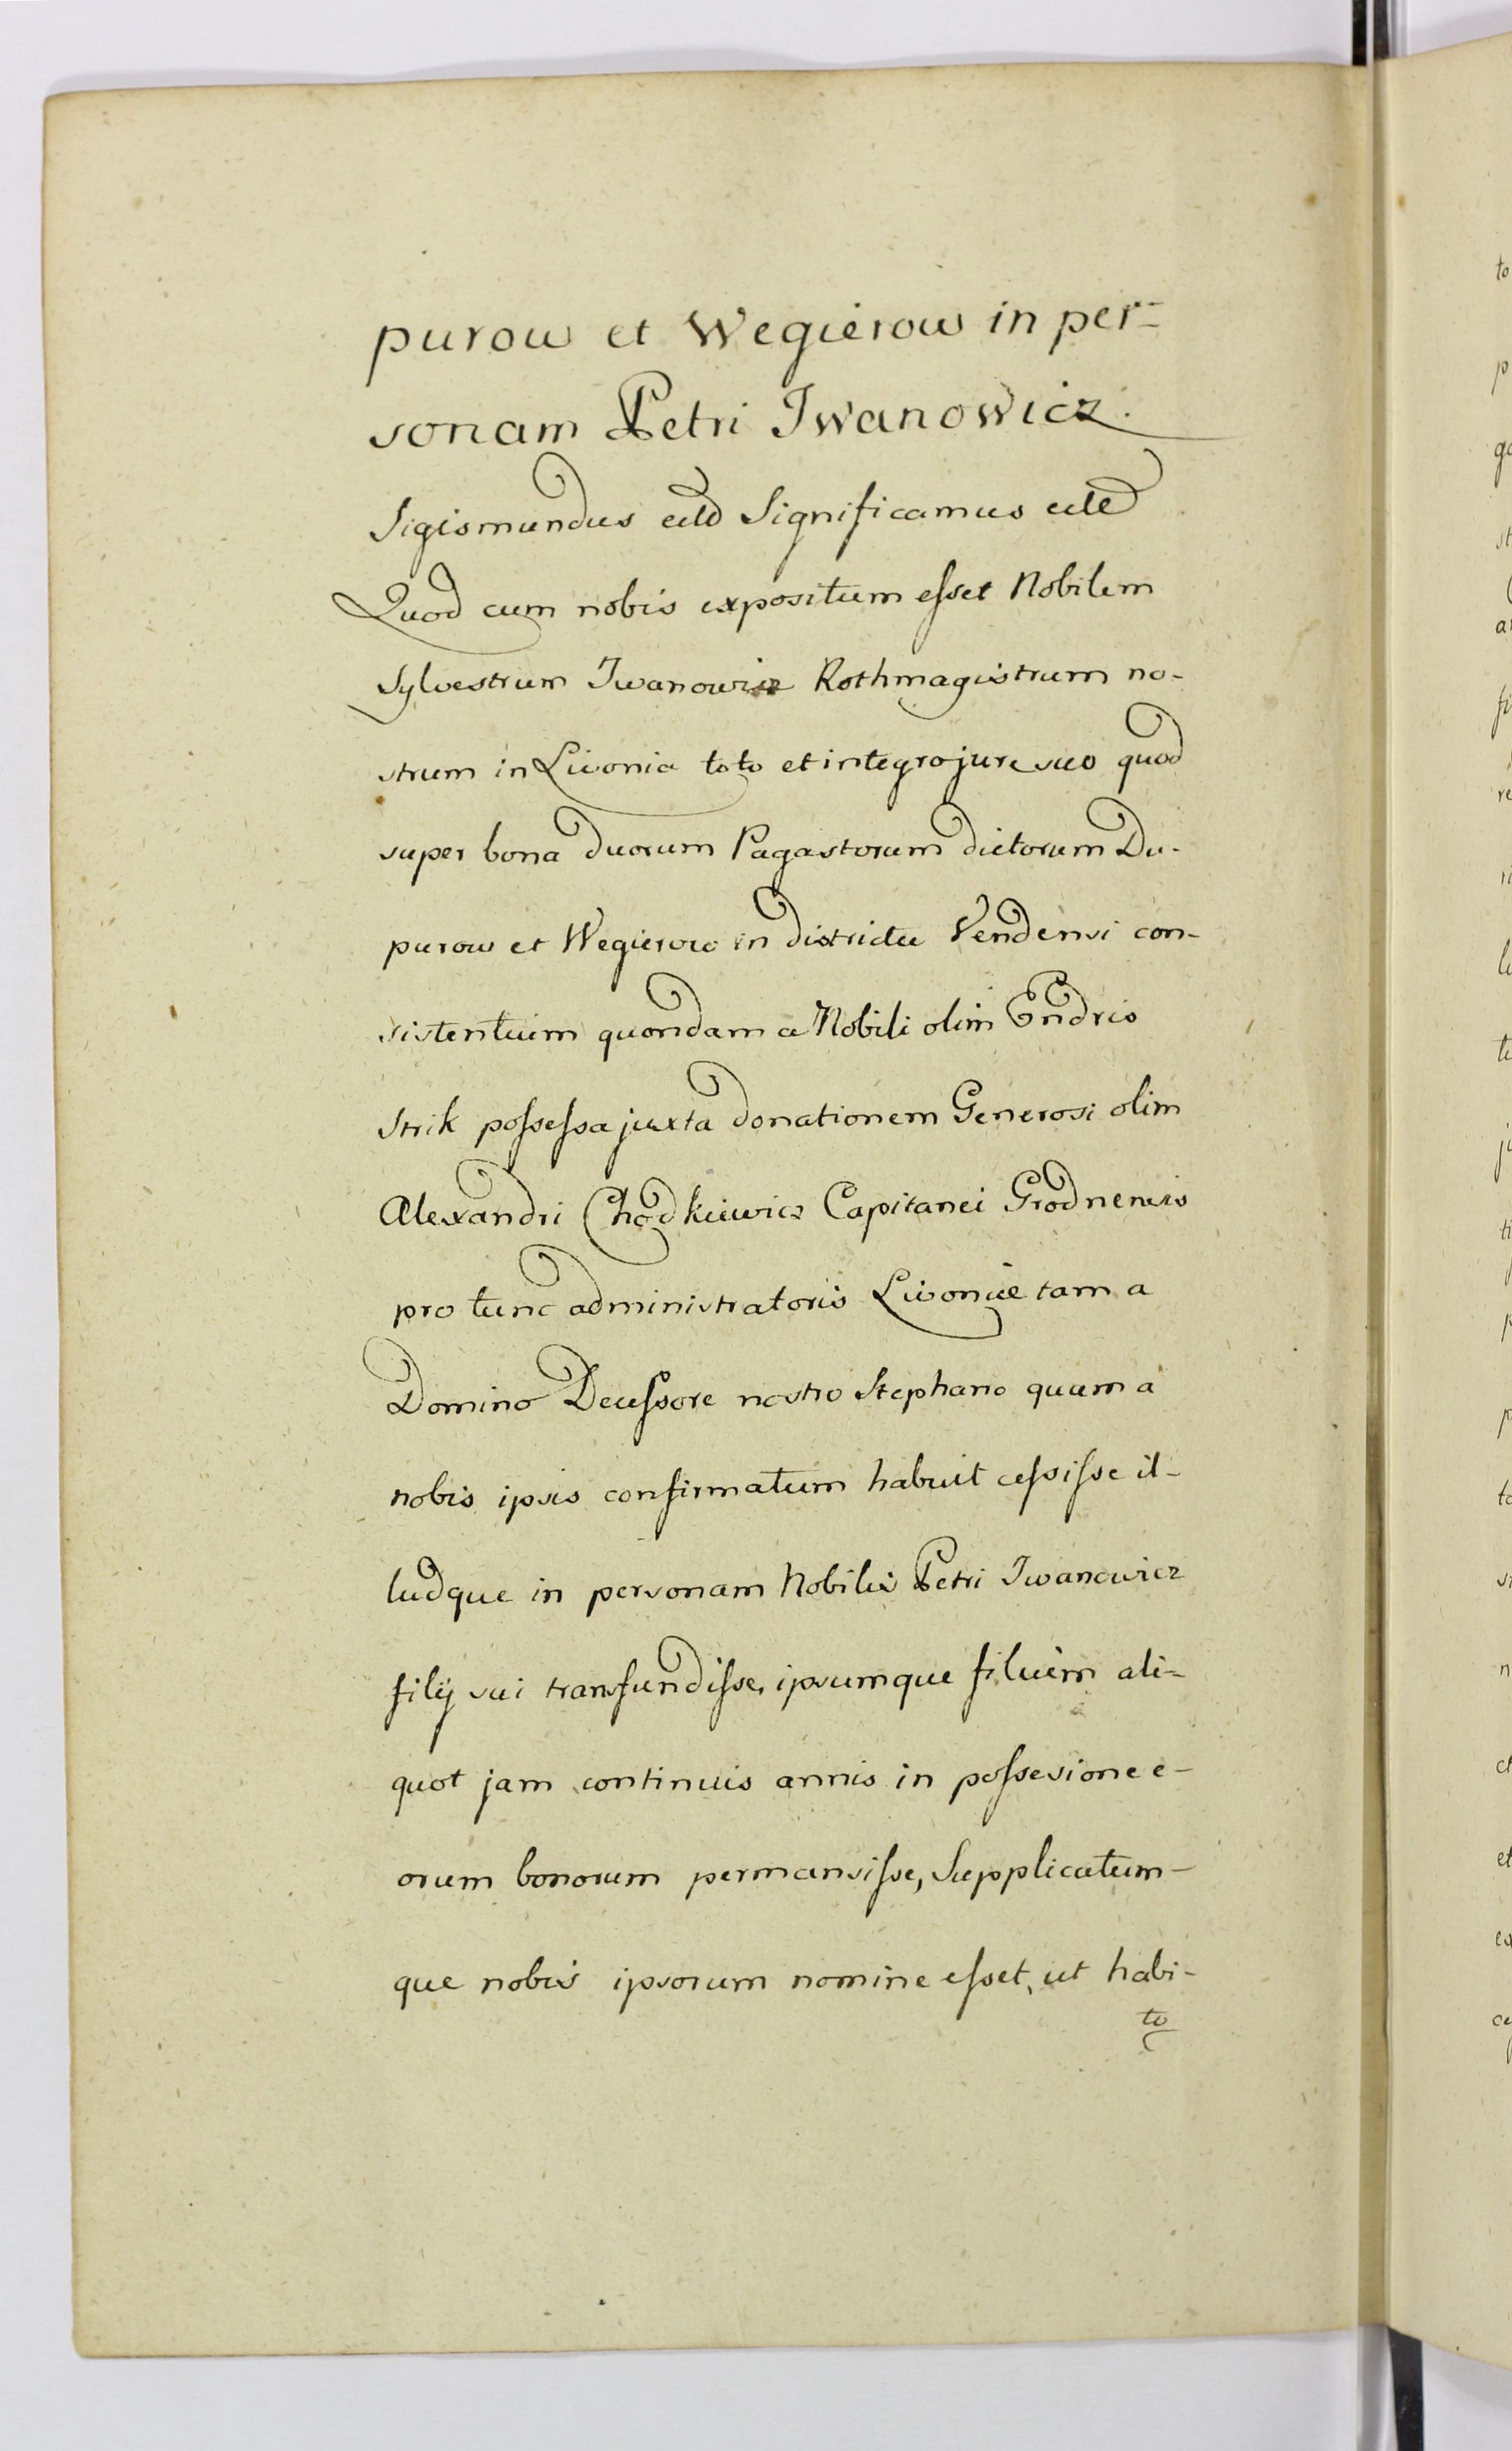 purow et Wegierow in per-
sonam Petri Iwanowicz.
Sigismundus etc Significamus etc
Quod cum nobis expositum esset Nobilem
Sylvestrum Iwanowicz Rothmagistrum no-
strum in Livonia toto et integro jure suo quod
super bona duorum Pagastorum dictorum Du-
purow et Wegierow in districtu Vendensi con-
sistentium quondam a Nobili olim Endris
Strik possessa juxta donationem Generosi olim
Alexandri Chodkiewicz Capitanei Grodnensis
pro tunc administratoris Livoniæ tam a
Domino Decessore nostro Stephano quam a
nobis ipsis confirmatum habuit cessisse il-
ludque in personam Nobilis Petri Iwanowicz
filij sui transfundisse, ipsumque filium ali-
quot jam continuis annis in possesione e-
orum bonorum permansisse, Supplicatum-
que nobis ipsorum nomine esset, ut habi-
to